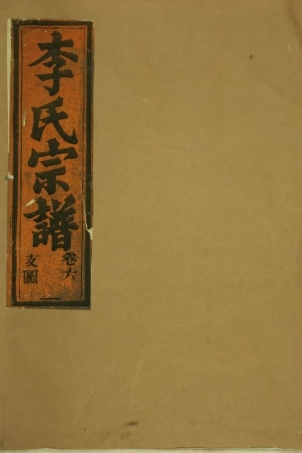 李氏宗譜
卷六
支圖
一